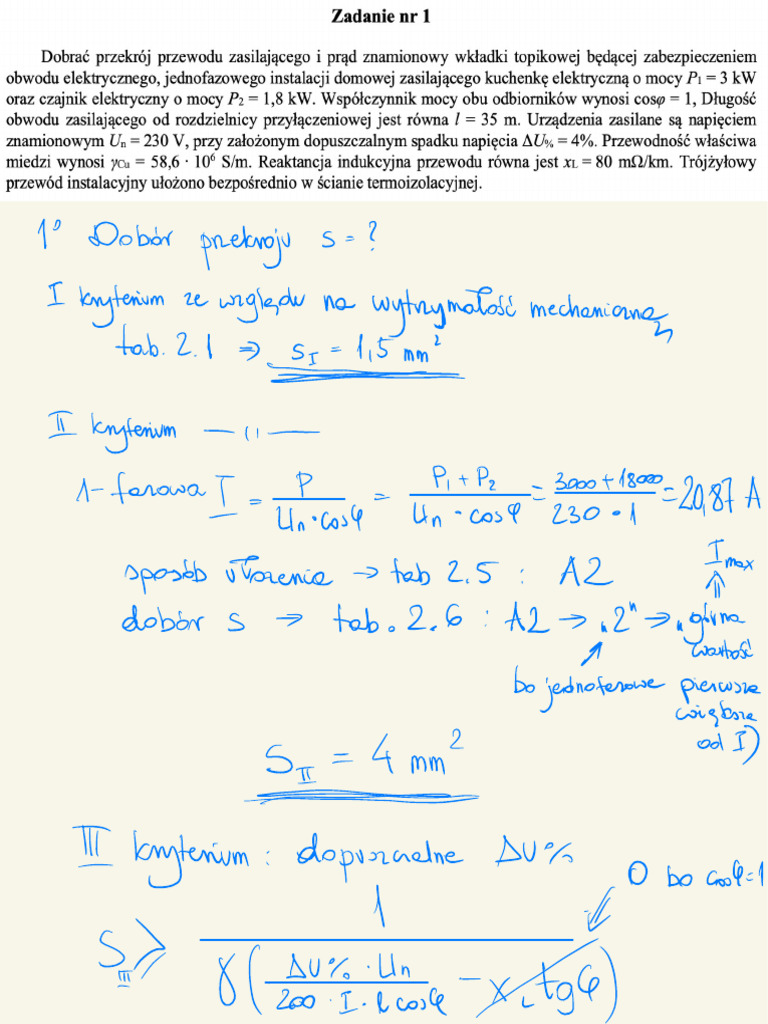 Zadanie nr 1
Dobrać przekrój przewodu zasilającego i prąd znamionowy wkładki topikowej będącej zabezpieczeniem
obwodu elektrycznego, jednofazowego instalacji domowej zasilającego kuchenkę elektryczną o mocy P₁ = 3 kW
oraz czajnik elektryczny o mocy P₂ = 1,8 kW. Współczynnik mocy obu odbiorników wynosi cosφ = 1, Długość
obwodu zasilającego od rozdzielnicy przyłączeniowej jest równa l = 35 m. Urządzenia zasilane są napięciem
znamionowym Uₙ = 230 V, przy założonym dopuszczalnym spadku napięcia ΔU% = 4%. Przewodność właściwa
miedzi wynosi γCu = 58,6 · 10⁶ S/m. Reaktancja indukcyjna przewodu równa jest xL = 80 mΩ/km. Trójżyłowy
przewód instalacyjny ułożono bezpośrednio w ścianie termoizolacyjnej.
1° Dobór przekroju s = ?
I kryterium ze względu na wytrzymałość mechaniczną
tab. 2.1 => s_I = 1,5 mm²
II kryterium — 11 —
1-fazowa I = P / (Un · cosφ) = (P₁ + P₂) / (Un · cosφ) = (3000 + 18000) / (230 · 1) = 20,87 A
sposób ułożenia → tab 2.5 : A2
I max
dobór s → tab. 2.6 : A2 → „2" → „główna
wartość
bo jednofazowe pierwsza
większa
od I)
S_II = 4 mm²
III kryterium : dopuszczalne ΔU%
0 bo cosφ=1
S_III ≥ 1 / (γ (ΔU% · Un / (200 · I · l cosφ) − x_L tgφ))